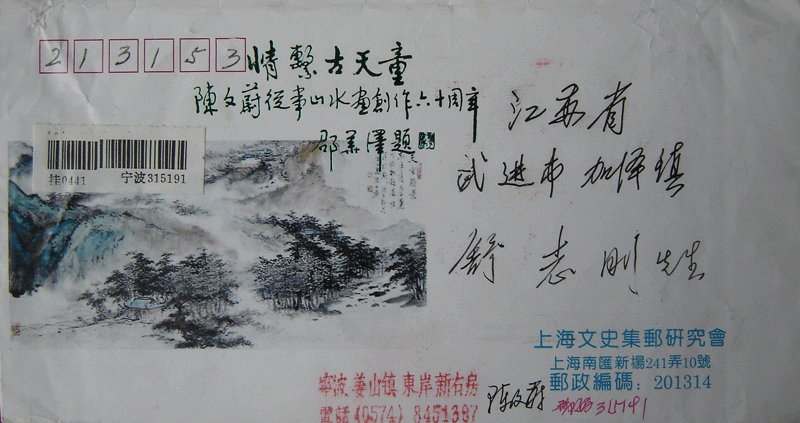 213153
情繫古天童
陳文蔚從事山水畫創作六十周年
邵華澤題
江苏省
武进市 加泽镇
舒志刚先生
挂0441
宁波315191
上海文史集郵研究會
上海南匯新場241弄10號
郵政編碼：201314
寧波姜山镇東岸新右房
電話(0574) 8451387
陈文蔚